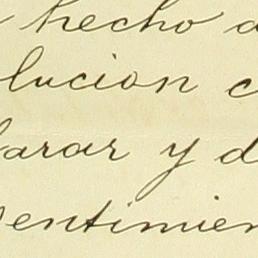 hecho a
lucion c
arar y d
entimien